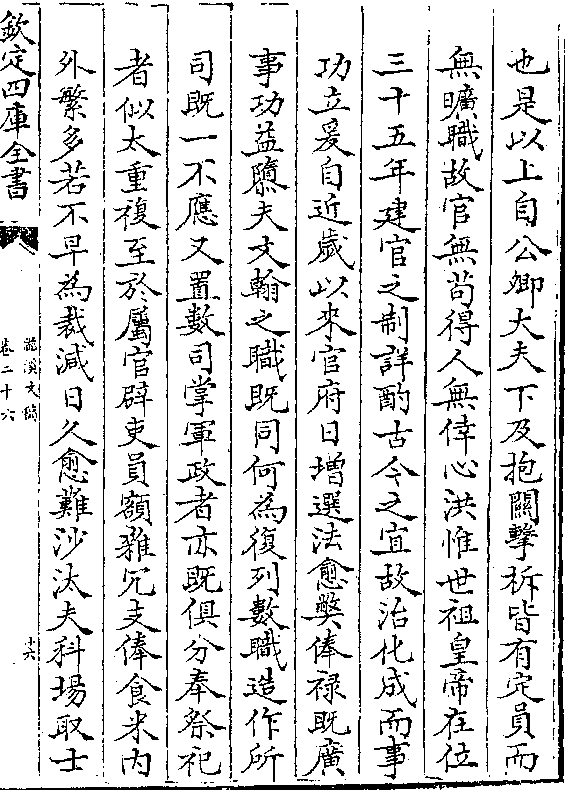 也是以上自公卿大夫下及抱關擊柝皆有定員而
無曠職故官無茍得人無倖心洪惟世祖皇帝在位
三十五年建官之制詳酌古今之宜故治化成而事
功立爰自近歲以來官府日增選法愈弊俸禄既廣
事功益隳夫文翰之職既同何為復列數職造作所
司既一不應又置數司掌軍政者亦既俱分奉祭祀
者似太重複至於屬官辟吏員額雜冗支俸食米内
外繁多若不早為裁減日久愈難沙汰夫科場取士
欽定四庫全書
滋溪文稿
卷二十六
十六